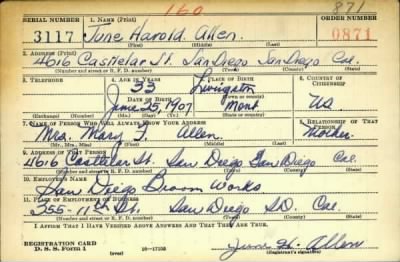 160 871
SERIAL NUMBER 1. NAME (Print) ORDER NUMBER
3117 June Harold Allen. 0871
(First) (Middle) (Last)
2. ADDRESS (Print)
4616 Castelar St. San Diego San Diego Cal.
(Number and street or R. F. D. number) (Town) (County) (State)
3. TELEPHONE 4. AGE IN YEARS 5. PLACE OF BIRTH 6. COUNTRY OF CITIZENSHIP
33 Livingston
DATE OF BIRTH (Town or county)
June 25, 1907 Mont. US
(Exchange) (Number) (Mo.) (Day) (Yr.) (State or country)
7. NAME OF PERSON WHO WILL ALWAYS KNOW YOUR ADDRESS 8. RELATIONSHIP OF THAT PERSON
Mrs. Mary Allen. Mother.
(Mr., Mrs., Miss) (First) (Middle) (Last)
9. ADDRESS OF THAT PERSON
4616 Castelar St. San Diego San Diego Cal.
(Number and street or R. F. D. number) (Town) (County) (State)
10. EMPLOYER'S NAME
San Diego Broom Works
11. PLACE OF EMPLOYMENT OR BUSINESS
355-11th St. San Diego S.D. Cal.
(Number and street or R. F. D. number) (Town) (County) (State)
I AFFIRM THAT I HAVE VERIFIED ABOVE ANSWERS AND THAT THEY ARE TRUE.
REGISTRATION CARD
D. S. S. Form 1 16-17105 June H. Allen
(Registrant's signature)